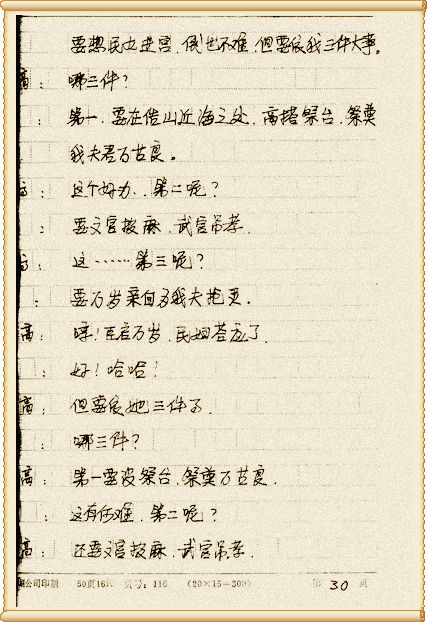 要想民女进宫，倒也不难，但要依我三件大事。
高：哪三件？
：第一，要在傍山近海之处，高搭祭台，祭奠
我夫君万杞良。
高：这个好办，第二呢？
：要文官披麻，武官吊孝。
高：这……第三呢？
：要万岁亲自为我夫抱灵。
高：嗯！启启万岁，民妇答应了。
：好！哈哈！
高：但要依她三件事。
：哪三件？
高：第一要设祭台，祭奠万杞良。
：这有何难，第二呢？
高：还要文官披麻，武官吊孝。
公司印刷 50页16K 页号：116 (20×15=300) 第 30 页